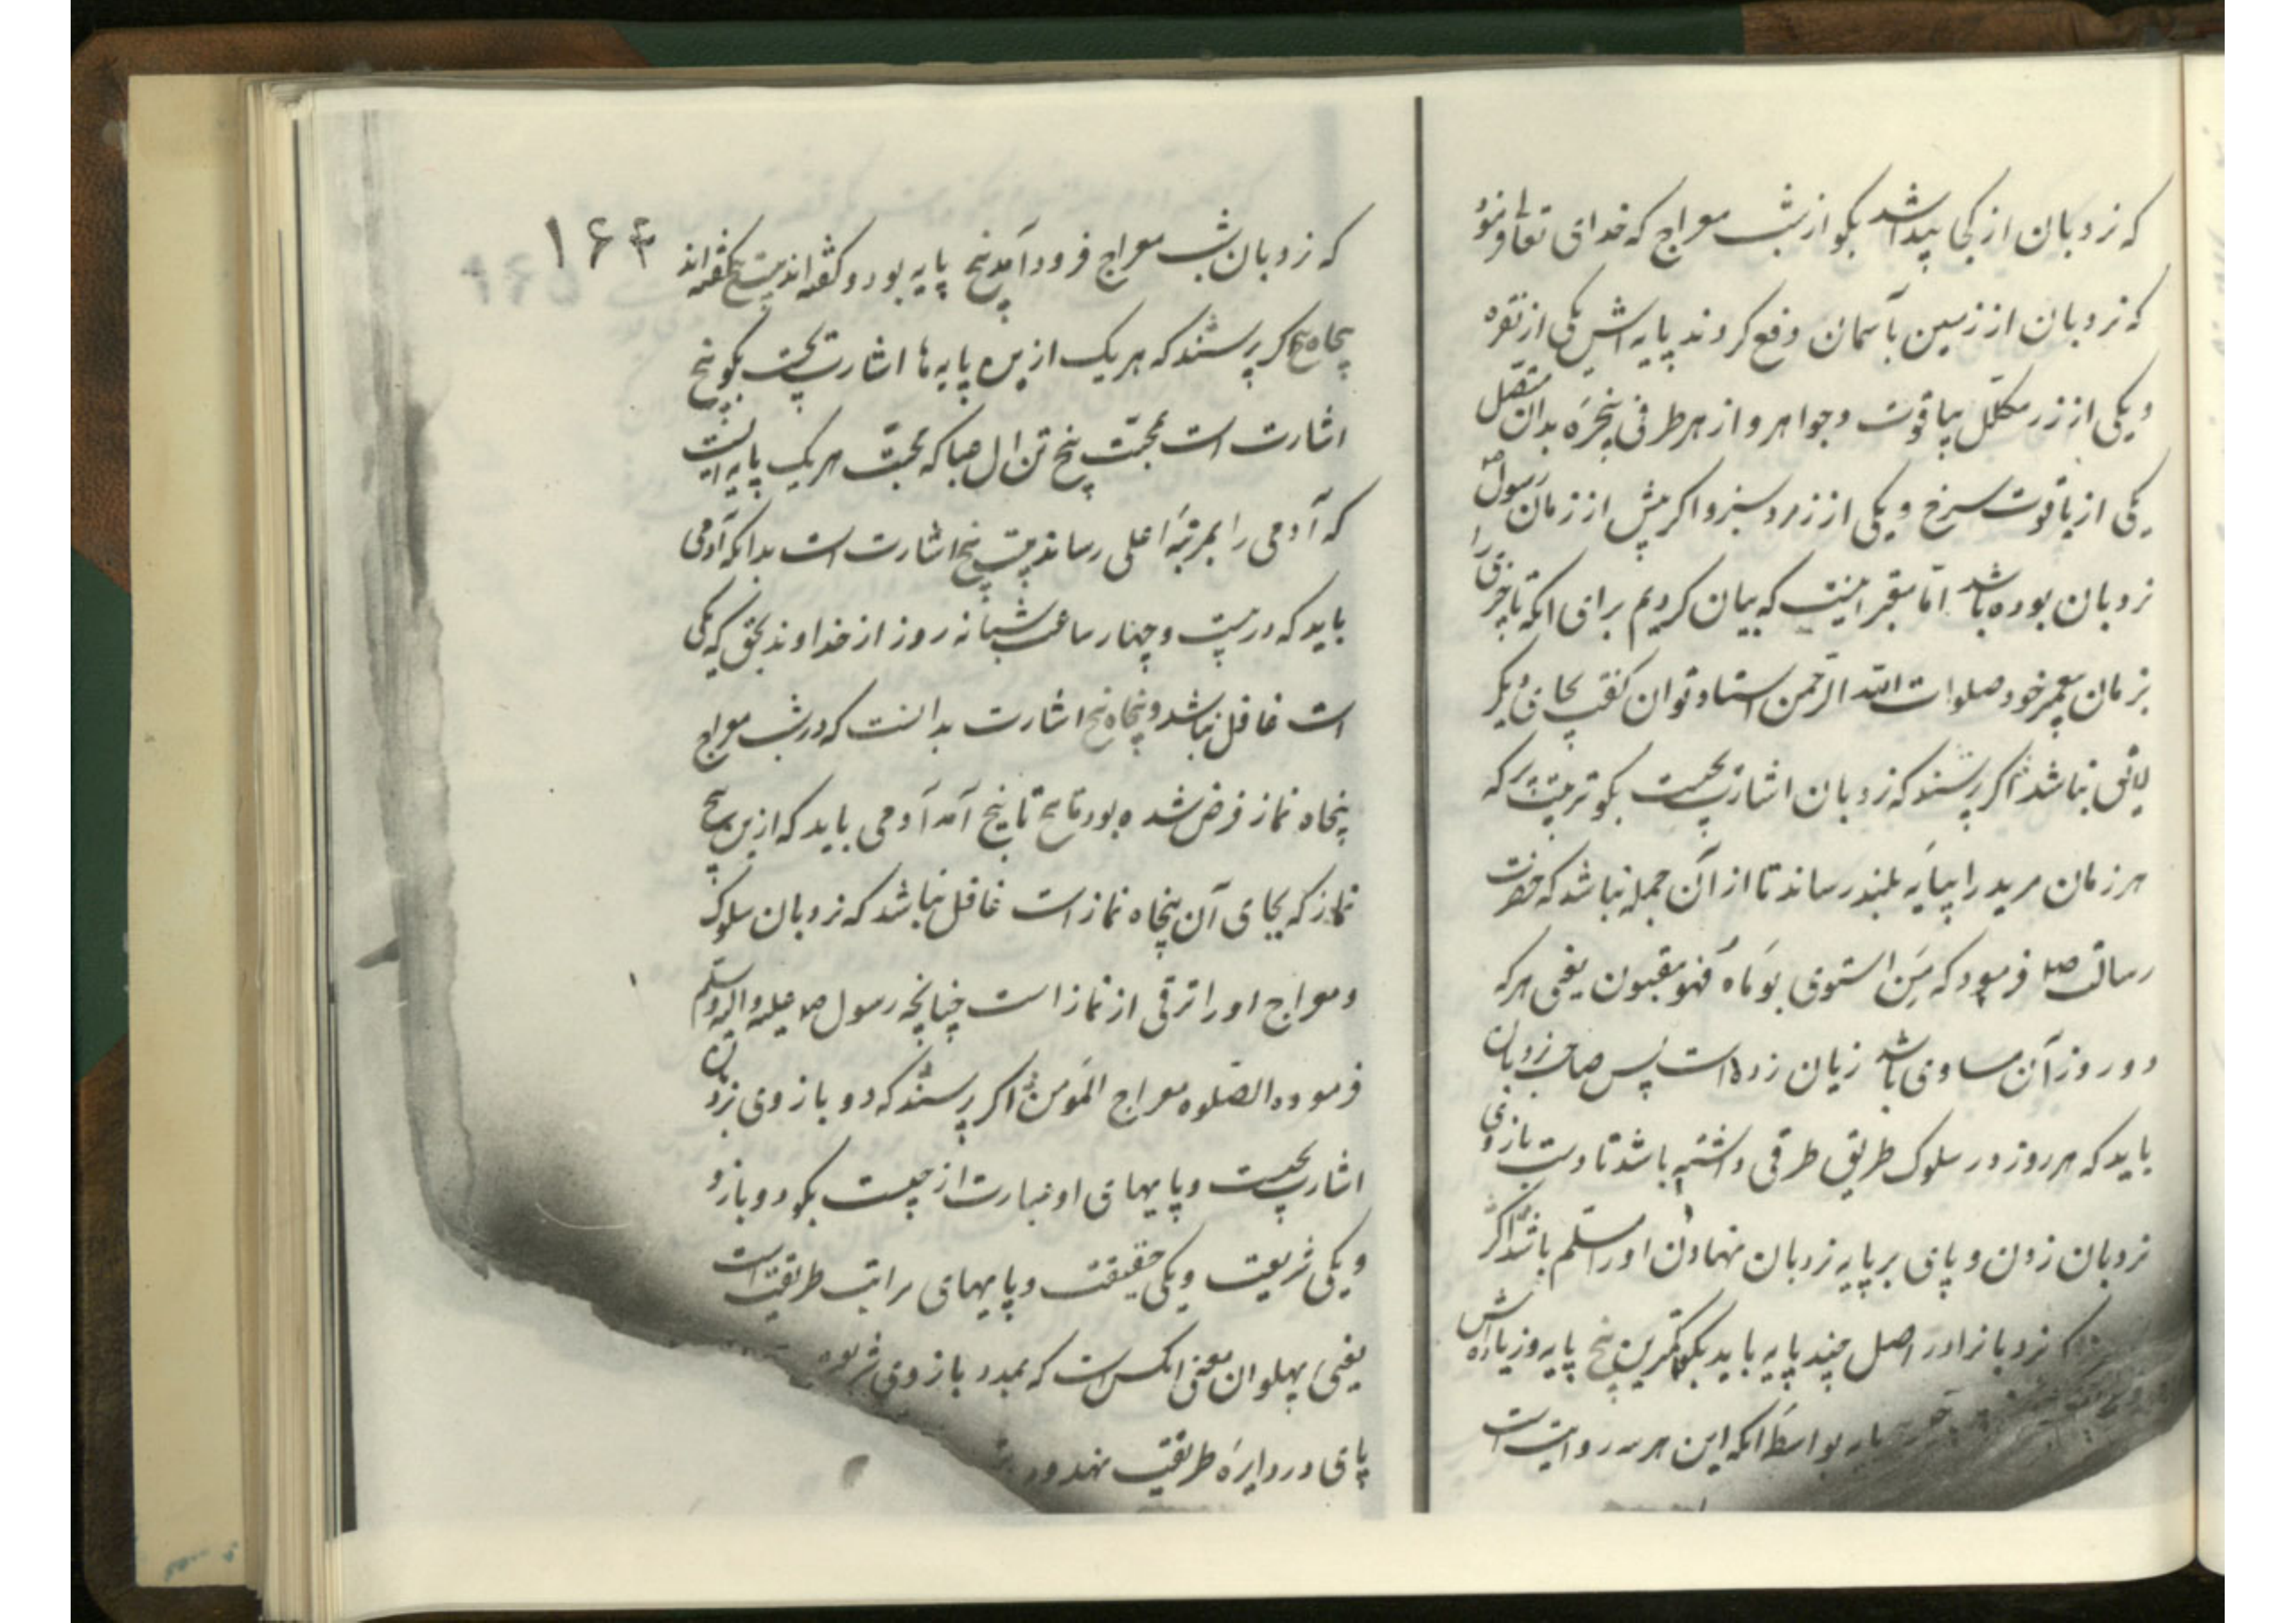 که نردبان از کجا پیدا شد بگو از شب معراج که خدای تعالی فرمود
که نردبان از زمین باسمان وفع کردند پایه اش یکی از نقره
و یکی از زر مکلل بیاقوت و جواهر و از هر طرفی پنجره بدان متصل
یکی از یاقوت سرخ و یکی از زمرد سبز و اگر پیش از زمان رسول ص
نردبان بوده باشد اما مقبر اینست که بیان کردیم برای انکه تا چیزی را
بزمان پیغمبر خود صلوات الله الرحمن استاد توان گفت بجای دیگر
لایق نباشد اگر پرسند که نردبان اشارت بچیست بگو تربیت که
هر زمان مرید را بپایه بلند رساند تا از آن جمله نباشد که حضرت
رسالت صلع فرمود که من استوی یوماه فهو مغبون یعنی هر که
دو روز آن مساوی باشد زیان زده است پس صاحب نردبان
باید که هر روز در سلوک طریق طرقی داشته باشد تا دست بازوی
نردبان زدن و پای بر پایه نردبان نهادن او را مسلم باشد اگر
که نردبانرا در اصل چند پایه باید بگو کمترین پنج پایه و زیاده اش
پایه بواسطه انکه این هر سه روایت است
۱۶۴
که نردبان شب معراج فرود آمد پنج پایه بود و گفته اند بیست پنج گفته اند
پنجاه پنج اگر پرسند که هر یک ازین پایه ها اشارت بچیست بگو پنج
اشارت است بمحبت پنج تن ال عبا که محبت هر یک پایه ایست
که آدمی را بمرتبه اعلی رساند بیست پنج اشارت است بدانکه آدمی
باید که در بیست و چهار ساعت شبانه روز از خداوند بحق که یکی
است غافل نباشد و پنجاه پنج اشارت بدانست که در شب معراج
پنجاه نماز فرض شده بود تا پنج آمد آدمی باید که ازین پنج
نماز که بجای آن پنجاه نماز است غافل نباشد که نردبان سلوک
و معراج او را ترقی از نماز است چنانچه رسول صلی علیه و اله وسلم
فرموده الصلوه معراج المؤمن اگر پرسند که دو بازوی نردبان
اشارت بچیست و پایهای او عبارت از چیست بگو دو بازو
و یکی شریعت و یکی حقیقت و پایهای مراتب طریقت است
یعنی پهلوان معنی انکس است که بمدد بازوی شریعت
پای در دایره طریقت نهد و در